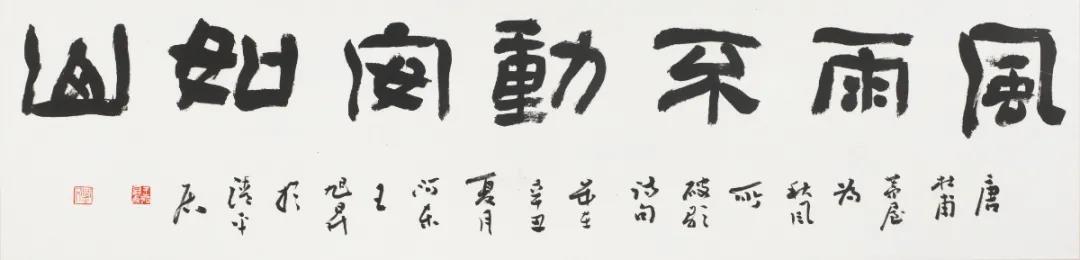 風雨不動安如山
唐杜甫茅屋為秋風所破歌詩句歲在辛丑夏月河東王旭昇於清平居